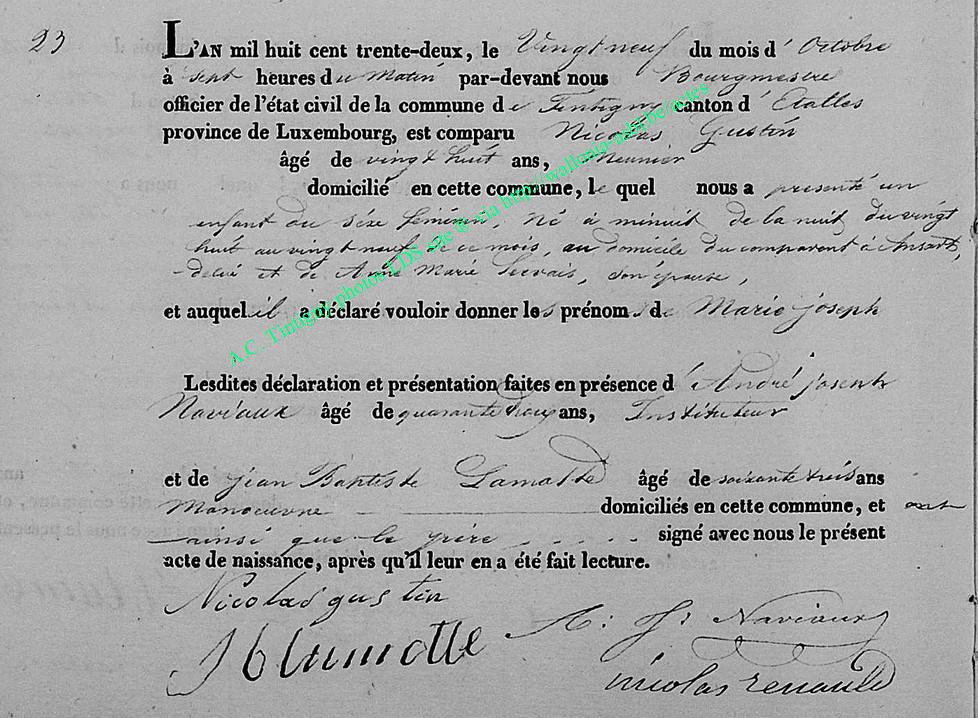 23
L'AN mil huit cent trente-deux, le Vingt neuf du mois d' Octobre
à sept heures du Matin par-devant nous Bourgmestre
officier de l'état civil de la commune de Tintigny canton d' Etalles
province de Luxembourg, est comparu Nicolas Gustin
âgé de vingt huit ans, Meunier
domicilié en cette commune, le quel nous a presenté un
enfant du séxe féminin, Né à minuit de la nuit du vingt
huit au vingt neuf de ce mois, au domicile du comparent à Ansart,
delui et de Anne Marie Servais, son epouse,
et auquel il a déclaré vouloir donner les prénoms de Marie joseph
Lesdites déclaration et présentation faites en présence d' André joseph
Naviaux âgé de quarante ans, Instituteur
et de jean Baptiste Lamotte âgé de soixante trois ans
Manoeuvre domiciliés en cette commune, et ont
ainsi que le père signé avec nous le présent
acte de naissance, après qu'il leur en a été fait lecture.
Nicolas gustin
A: J: Naviaux
J b lamotte
nicolas renauld
A.C. Tintigny photos LDS site @ via http://wallonia-asbl.be/actes